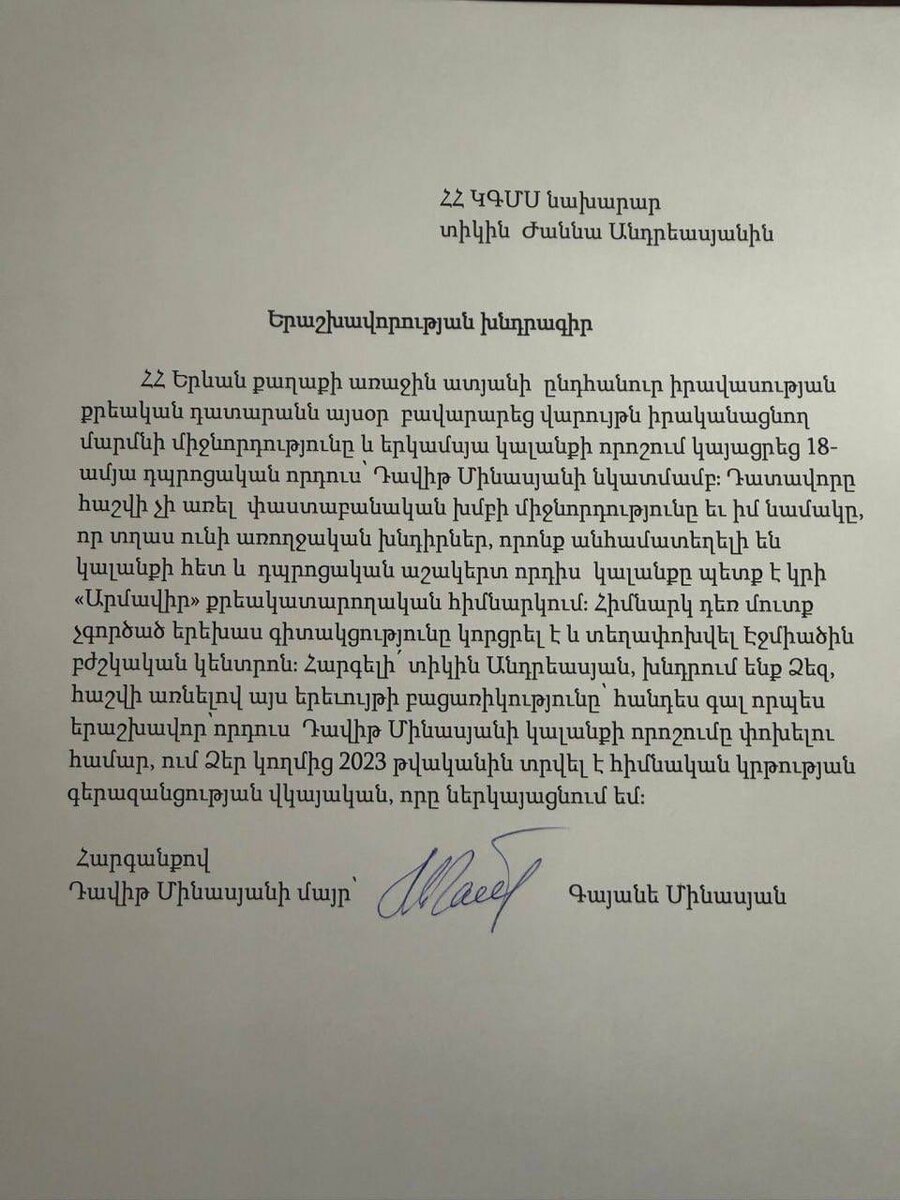 ՀՀ ԿԳՄՍ նախարար
տիկին Ժաննա Անդրեասյանին
Երաշխավորության խնդրագիր
ՀՀ Երևան քաղաքի առաջին ատյանի ընդհանուր իրավասության
քրեական դատարանն այսօր բավարարեց վարույթն իրականացնող
մարմնի միջնորդությունը և երկամսյա կալանքի որոշում կայացրեց 18-
ամյա դպրոցական որդուս՝ Դավիթ Մինասյանի նկատմամբ։ Դատավորը
հաշվի չի առել փաստաբանական խմբի միջնորդությունը եւ իմ նամակը,
որ տղաս ունի առողջական խնդիրներ, որոնք անհամատեղելի են
կալանքի հետ և դպրոցական աշակերտ որդիս կալանքը պետք է կրի
«Արմավիր» քրեակատարողական հիմնարկում։ Հիմնարկ դեռ մուտք
չգործած երեխաս գիտակցությունը կորցրել է և տեղափոխվել Էջմիածին
բժշկական կենտրոն։ Հարգելի՛ տիկին Անդրեասյան, խնդրում ենք Ձեզ,
հաշվի առնելով այս երեւույթի բացառիկությունը՝ հանդես գալ որպես
երաշխավոր՝որդուս Դավիթ Մինասյանի կալանքի որոշումը փոխելու
համար, ում Ձեր կողմից 2023 թվականին տրվել է հիմնական կրթության
գերազանցության վկայական, որը ներկայացնում եմ։
Հարգանքով
Դավիթ Մինասյանի մայր՝ Գայանե Մինասյան